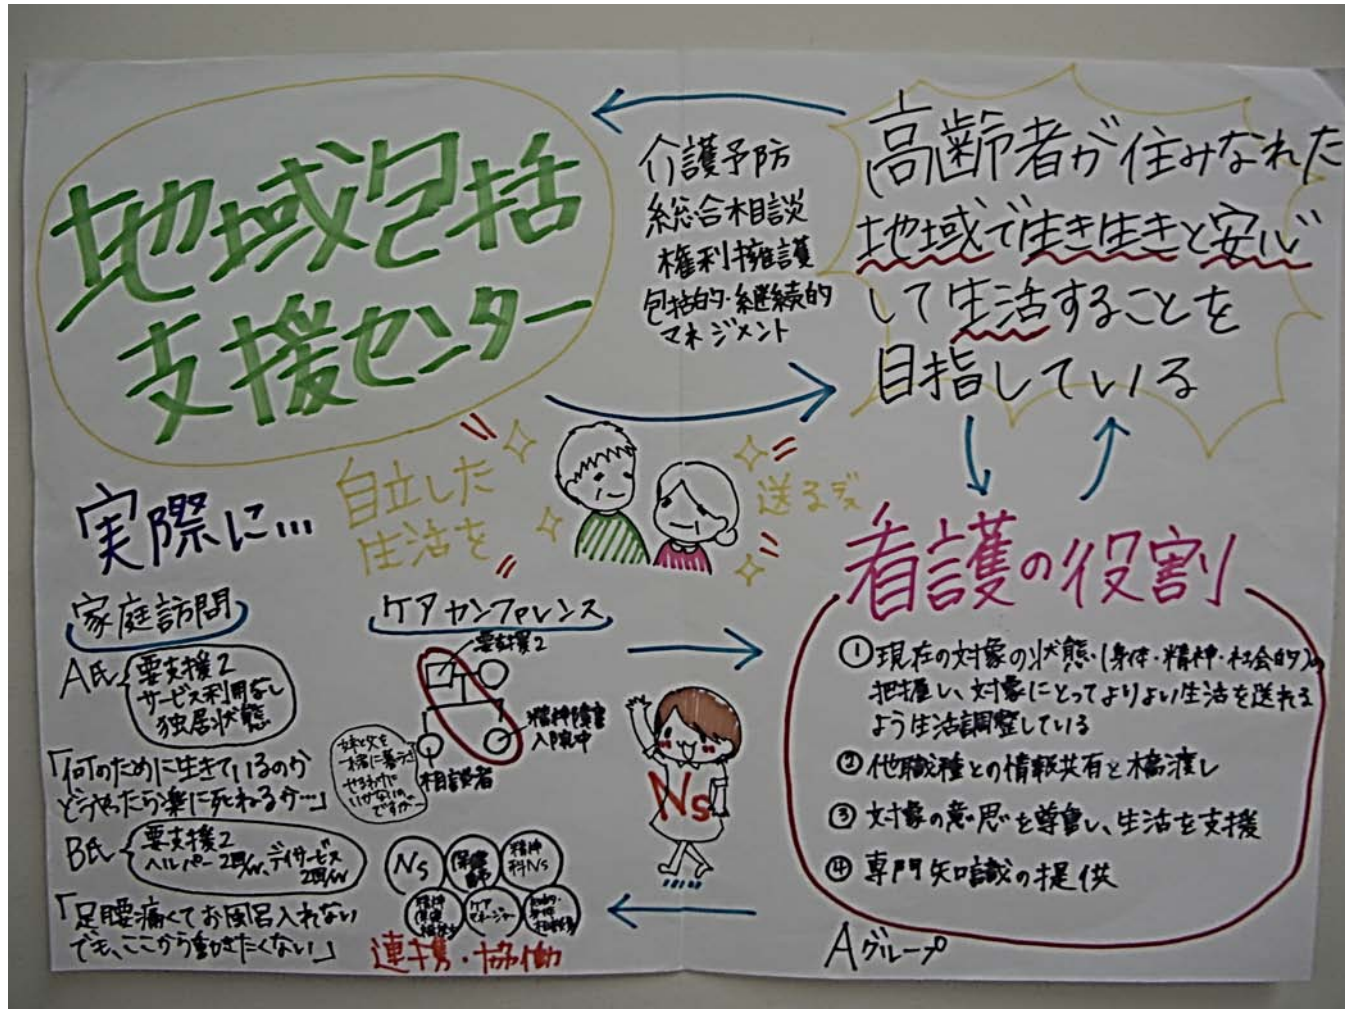 地域包括
支援センター
介護予防
総合相談
権利擁護
包括的・継続的
マネジメント
高齢者が住みなれた
地域で生き生きと安心
して生活することを
目指している
自立した
生活を
送る
実際に…
家庭訪問
A氏
要支援2
サービス利用なし
独居状態
「何のために生きているのか
どうやったら楽に死ねるか…」
B氏
要支援2
ヘルパー2回/w、デイサービス
2回/w
「足腰痛くてお風呂入れない
でも、ここから動きたくない」
ケアカンファレンス
要支援2
精神障害
入院中
相談者
妹と父を
一緒に暮らさ
せるわけに
いかないの
ですが…
Ns
保健
師
精神
科Ns
精神
保健
ケア
マネージャー
連携・協働
Ns
看護の役割
①現在の対象の状態(身体・精神・社会的)の
把握し、対象にとってよりよい生活を送れる
よう生活調整している
②他職種との情報共有と橋渡し
③対象の意思を尊重し、生活を支援
④専門知識の提供
Aグループ